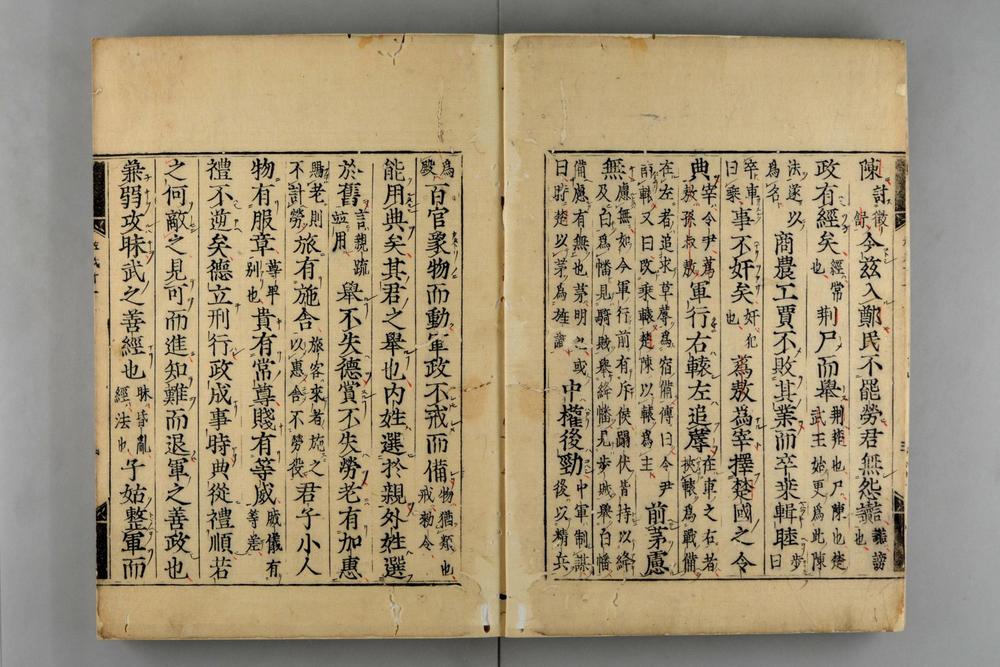 陳討徵舒今茲入鄭民不罷勞君無怨讟讟謗也
政有經矣經常也荆尸而舉荆楚也尸陳也楚武王始更爲此陳
法遂以爲名商農工賈不敗其業而卒乗輯睦步曰
卒車曰乗事不奸矣奸犯也蔿敖爲宰擇楚國之令
典宰令尹蔿敖孫叔敖軍行右轅左追蓐在車之右者挾轅爲戰備
在左者追求草蓐爲宿備傳曰令尹南轅又曰改乗轅楚陳以轅爲主前茅慮
無慮無如今軍行前有斥候蹹伏皆持以絳及白爲幡見騎賊舉絳幡見步賊舉白幡
備慮有無也茅明也或曰時楚以茅爲旌識中權後勁中軍制謀後以精兵
爲殿百官象物而動軍政不戒而備物猶類也戒勑令
能用典矣其君之舉也内姓選於親外姓選
於舊言親疏並用舉不失德賞不失勞老有加惠
賜老則不計勞旅有施舍旅客來者施之以惠舍不勞役君子小人
物有服章尊卑别也貴有常尊賤有等威威儀有等差
禮不逆矣德立刑行政成事時典從禮順若
之何敵之見可而進知難而退軍之善政也
兼弱攻昧武之善經也昧昏亂經法也子姑整軍而